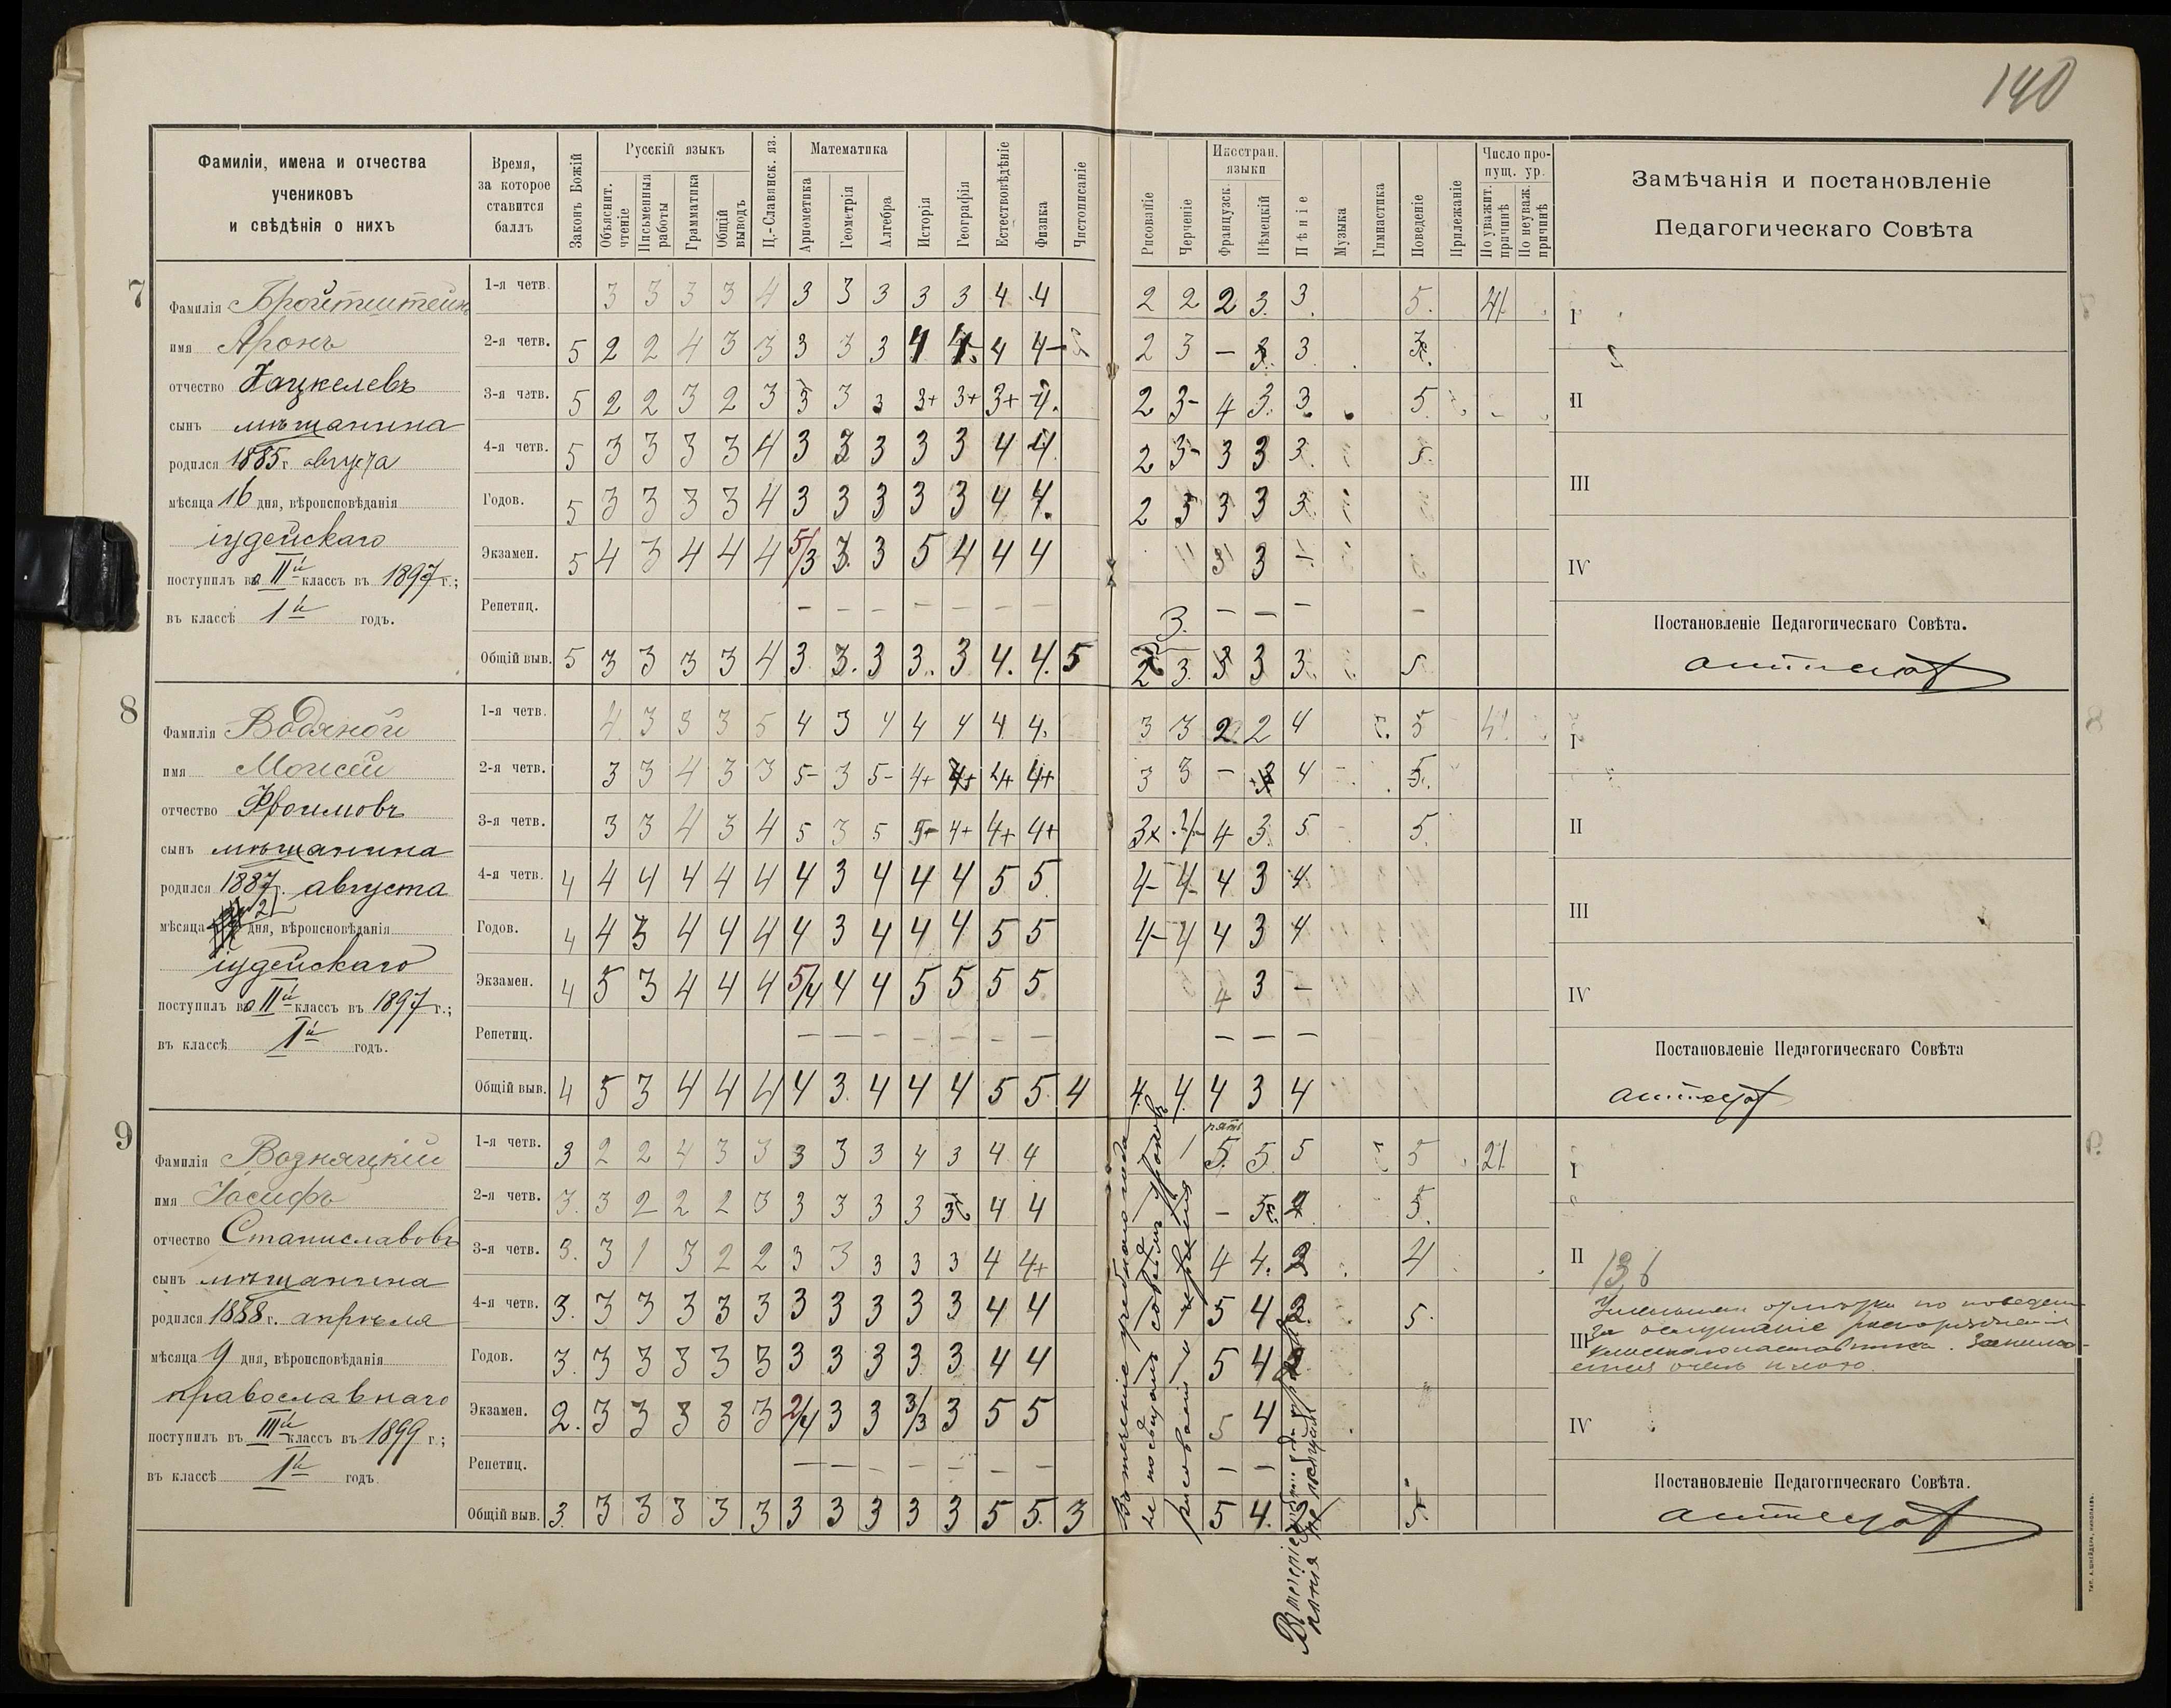 140
Фамиліи, имена и отчества
учениковъ
и свѣдѣнія о нихъ
Время,
за которое
ставится
баллъ
Законъ Божій
Русскій языкъ
Объяснит. чтеніе
Письменныя работы
Грамматика
Общій выводъ
Ц.-Славянск. яз.
Математика
Ариѳметика
Геометрія
Алгебра
Исторія
Географія
Естествовѣдѣніе
Физика
Чистописаніе
Рисованіе
Черченіе
Иностран. языки
Французск.
Нѣмецкій
Пѣніе
Музыка
Гимнастика
Поведеніе
Прилежаніе
Число про-
пущ. ур.
По уважит. причинѣ
По неуваж. причинѣ
Замѣчанія и постановленіе
Педагогическаго Совѣта
7
Фамилія Бройтштейнъ
имя Аронъ
отчество Хацкелевъ
сынъ мѣщанина
родился 1885 г. августа
мѣсяца 16 дня, вѣроисповѣданія
іудейскаго
поступилъ во IIй классъ въ 1897 г.;
въ классѣ 1й годъ.
1-я четв. 3 3 3 3 4 3 3 3 3 3 4 4 2 2 2 3 3 5 41
2-я четв. 5 2 2 4 3 3 3 3 3 4 4 4 4- 2 3 — 3 3
3-я четв. 5 2 2 3 2 3 3 3 3 3+ 3+ 3+ 4 2 3- 4 3 3 5
4-я четв. 5 3 3 3 3 4 3 3 3 3 3 4 4 2 3- 3 3 3 5
Годов. 5 3 3 3 3 4 3 3 3 3 3 4 4 2 3 3 3 3
Экзамен. 5 4 3 4 4 4 5/3 3 3 5 4 4 4 3 3 —
Репетиц. — — — — — — — — — — —
Общій выв. 5 3 3 3 3 4 3 3 3 3 3 4 4 5 3 3 3 3 5
I
II
III
IV
Постановленіе Педагогическаго Совѣта.
аттестат
8
Фамилія Водяной
имя Моисей
отчество Фроимовъ
сынъ мѣщанина
родился 1887 г. августа
мѣсяца 21 дня, вѣроисповѣданія
іудейскаго
поступилъ во IIй классъ въ 1897 г.;
въ классѣ Iй годъ.
1-я четв. 4 3 3 3 5 4 3 4 4 4 4 4 3 3 2 2 4 5
2-я четв. 3 3 4 3 3 5- 3 5- 4+ 4+ 4+ 4+ 3 3 — 4 5
3-я четв. 3 3 4 3 4 5 3 5 5- 4+ 4+ 4+ 4 3 5 5
4-я четв. 4 4 4 4 4 4 4 3 4 4 4 5 5 4- 4- 4 3 4
Годов. 4 4 3 4 4 4 4 3 4 4 4 5 5 4- 4 4 3 4
Экзамен. 4 5 3 4 4 4 5/4 4 4 5 5 5 5 4 3 —
Репетиц. — — — — — — — — — —
Общій выв. 4 5 3 4 4 4 4 3 4 4 4 5 5 4 4 4 4 3 4
I
II
III
IV
Постановленіе Педагогическаго Совѣта
аттестат
9
Фамилія Возняцкій
имя Іосифъ
отчество Станиславовъ
сынъ мѣщанина
родился 1888 г. апрѣля
мѣсяца 9 дня, вѣроисповѣданія
православнаго
поступилъ въ IIIй классъ въ 1899 г.;
въ классѣ Iй годъ.
1-я четв. 3 2 2 4 3 3 3 3 3 4 3 4 4 1 5 5 5 5 21
2-я четв. 3 3 2 2 2 3 3 3 3 3 3 4 4 — 5 5
3-я четв. 3 3 1 3 2 2 3 3 3 3 3 4 4+ 4 4 4
4-я четв. 3 3 3 3 3 3 3 3 3 3 3 4 4 5 4 5
Годов. 3 3 3 3 3 3 3 3 3 3 3 4 4 5 4
Экзамен. 2 3 3 3 3 3 2/4 3 3 3/3 3 5 5 5 4
Репетиц. — — — — — — — — —
Общій выв. 3 3 3 3 3 3 3 3 3 3 3 5 5 3 5 4 5
Въ теченіе учебнаго года
не посѣщалъ совсѣмъ уроковъ
рисованія и черченія
Въ теченіе года уроковъ
пѣнія не посѣщалъ
I
II 136
III
Уменьшена отмѣтка по поведен.
за ослушаніе распоряженія
класснаго наставника. Занима-
ется очень плохо.
IV
Постановленіе Педагогическаго Совѣта.
аттестат